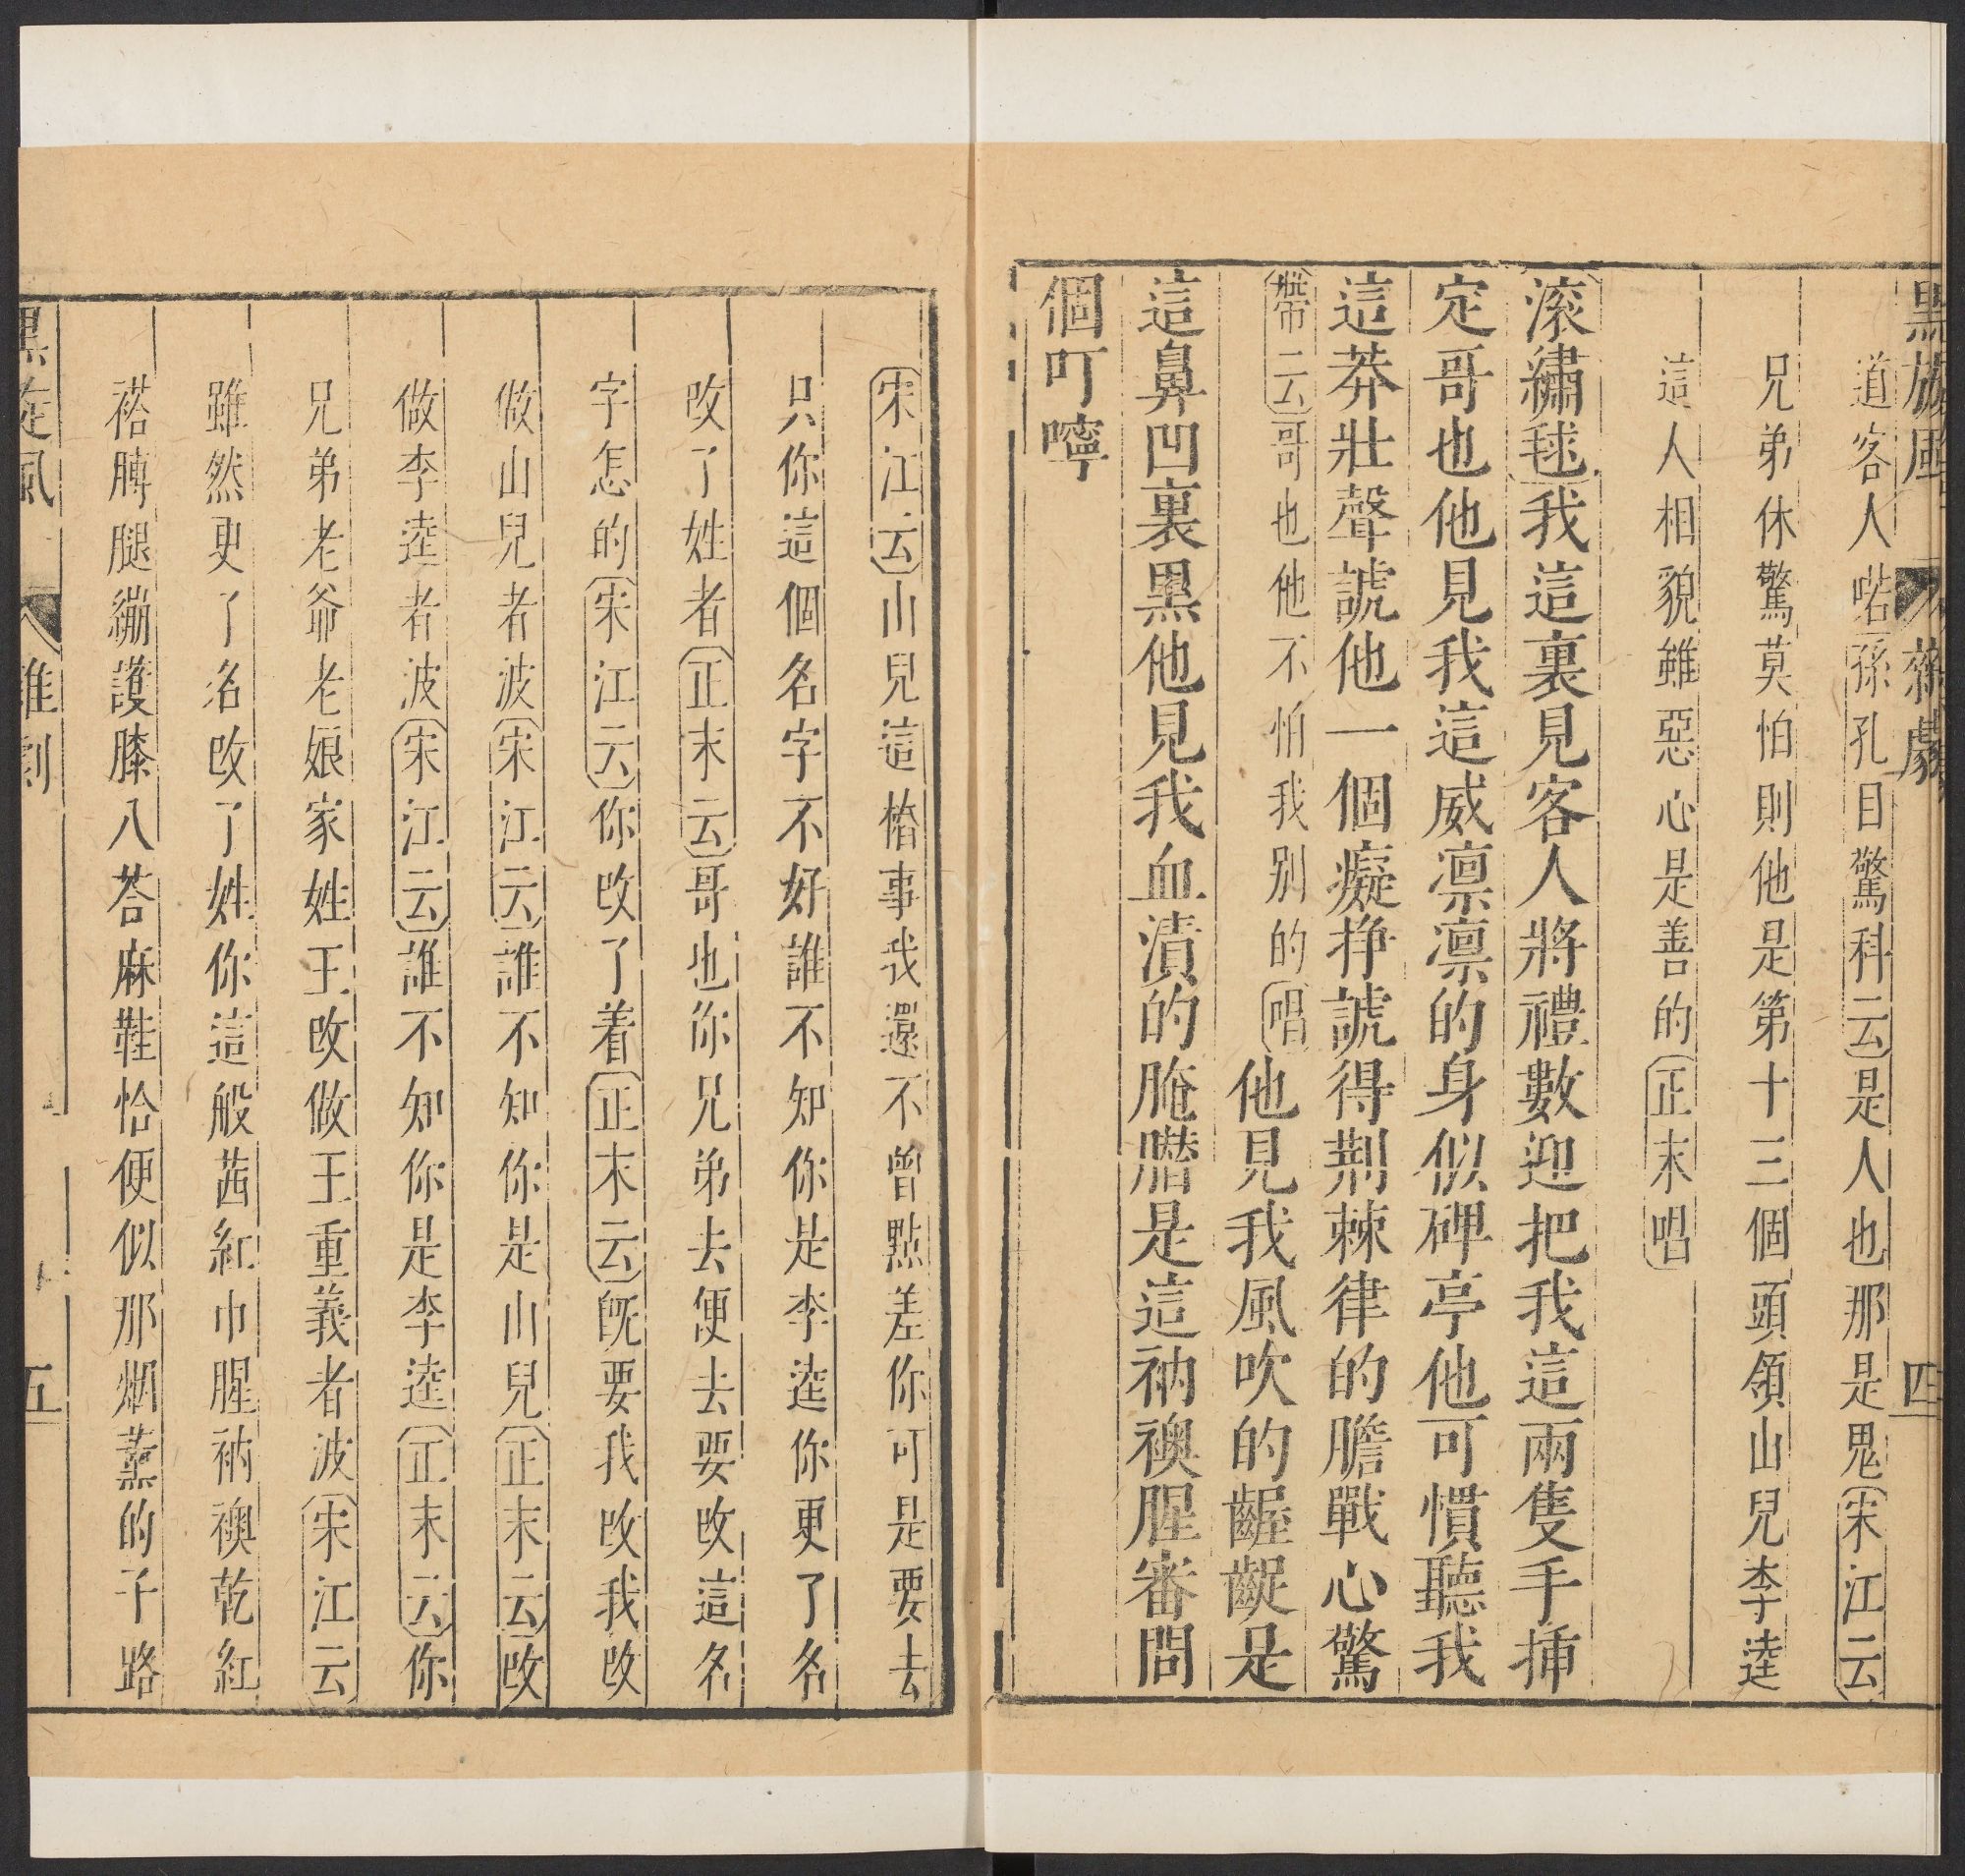 黑旋風 雜劇 四
道客人喏孫孔目驚科云是人也那是鬼宋江云
兄弟休驚莫怕則他是第十三個頭領山兒李逵
這人相貌雖惡心是善的正末唱
滚繡毬我這裏見客人將禮數迎把我這兩隻手揷
定哥也他見我這威凛凛的身似碑亭他可慣聽我
這莽壯聲諕他一個癡挣諕得荆棘律的膽戰心驚
帶云哥也他不怕我别的唱他見我風吹的齷齪是
這鼻凹裏黑他見我血漬的腌臢是這衲襖腥審問
個叮嚀
宋江云山兒這樁事我還不曾點差你可是要去
只你這個名字不好誰不知你是李逵你更了名
改了姓者正末云哥也你兄弟去便去要改這名
字怎的宋江云你改了着正末云既要我改我改
做山兒者波宋江云誰不知你是山兒正末云改
做李逵者波宋江云誰不知你是李逵正末云你
兄弟老爺老娘家姓王改做王重義者波宋江云
雖然更了名改了姓你這般茜紅巾腥衲襖乾紅
褡膊腿繃護膝八荅麻鞋恰便似那烟薰的子路
黑旋風 雜劇 五